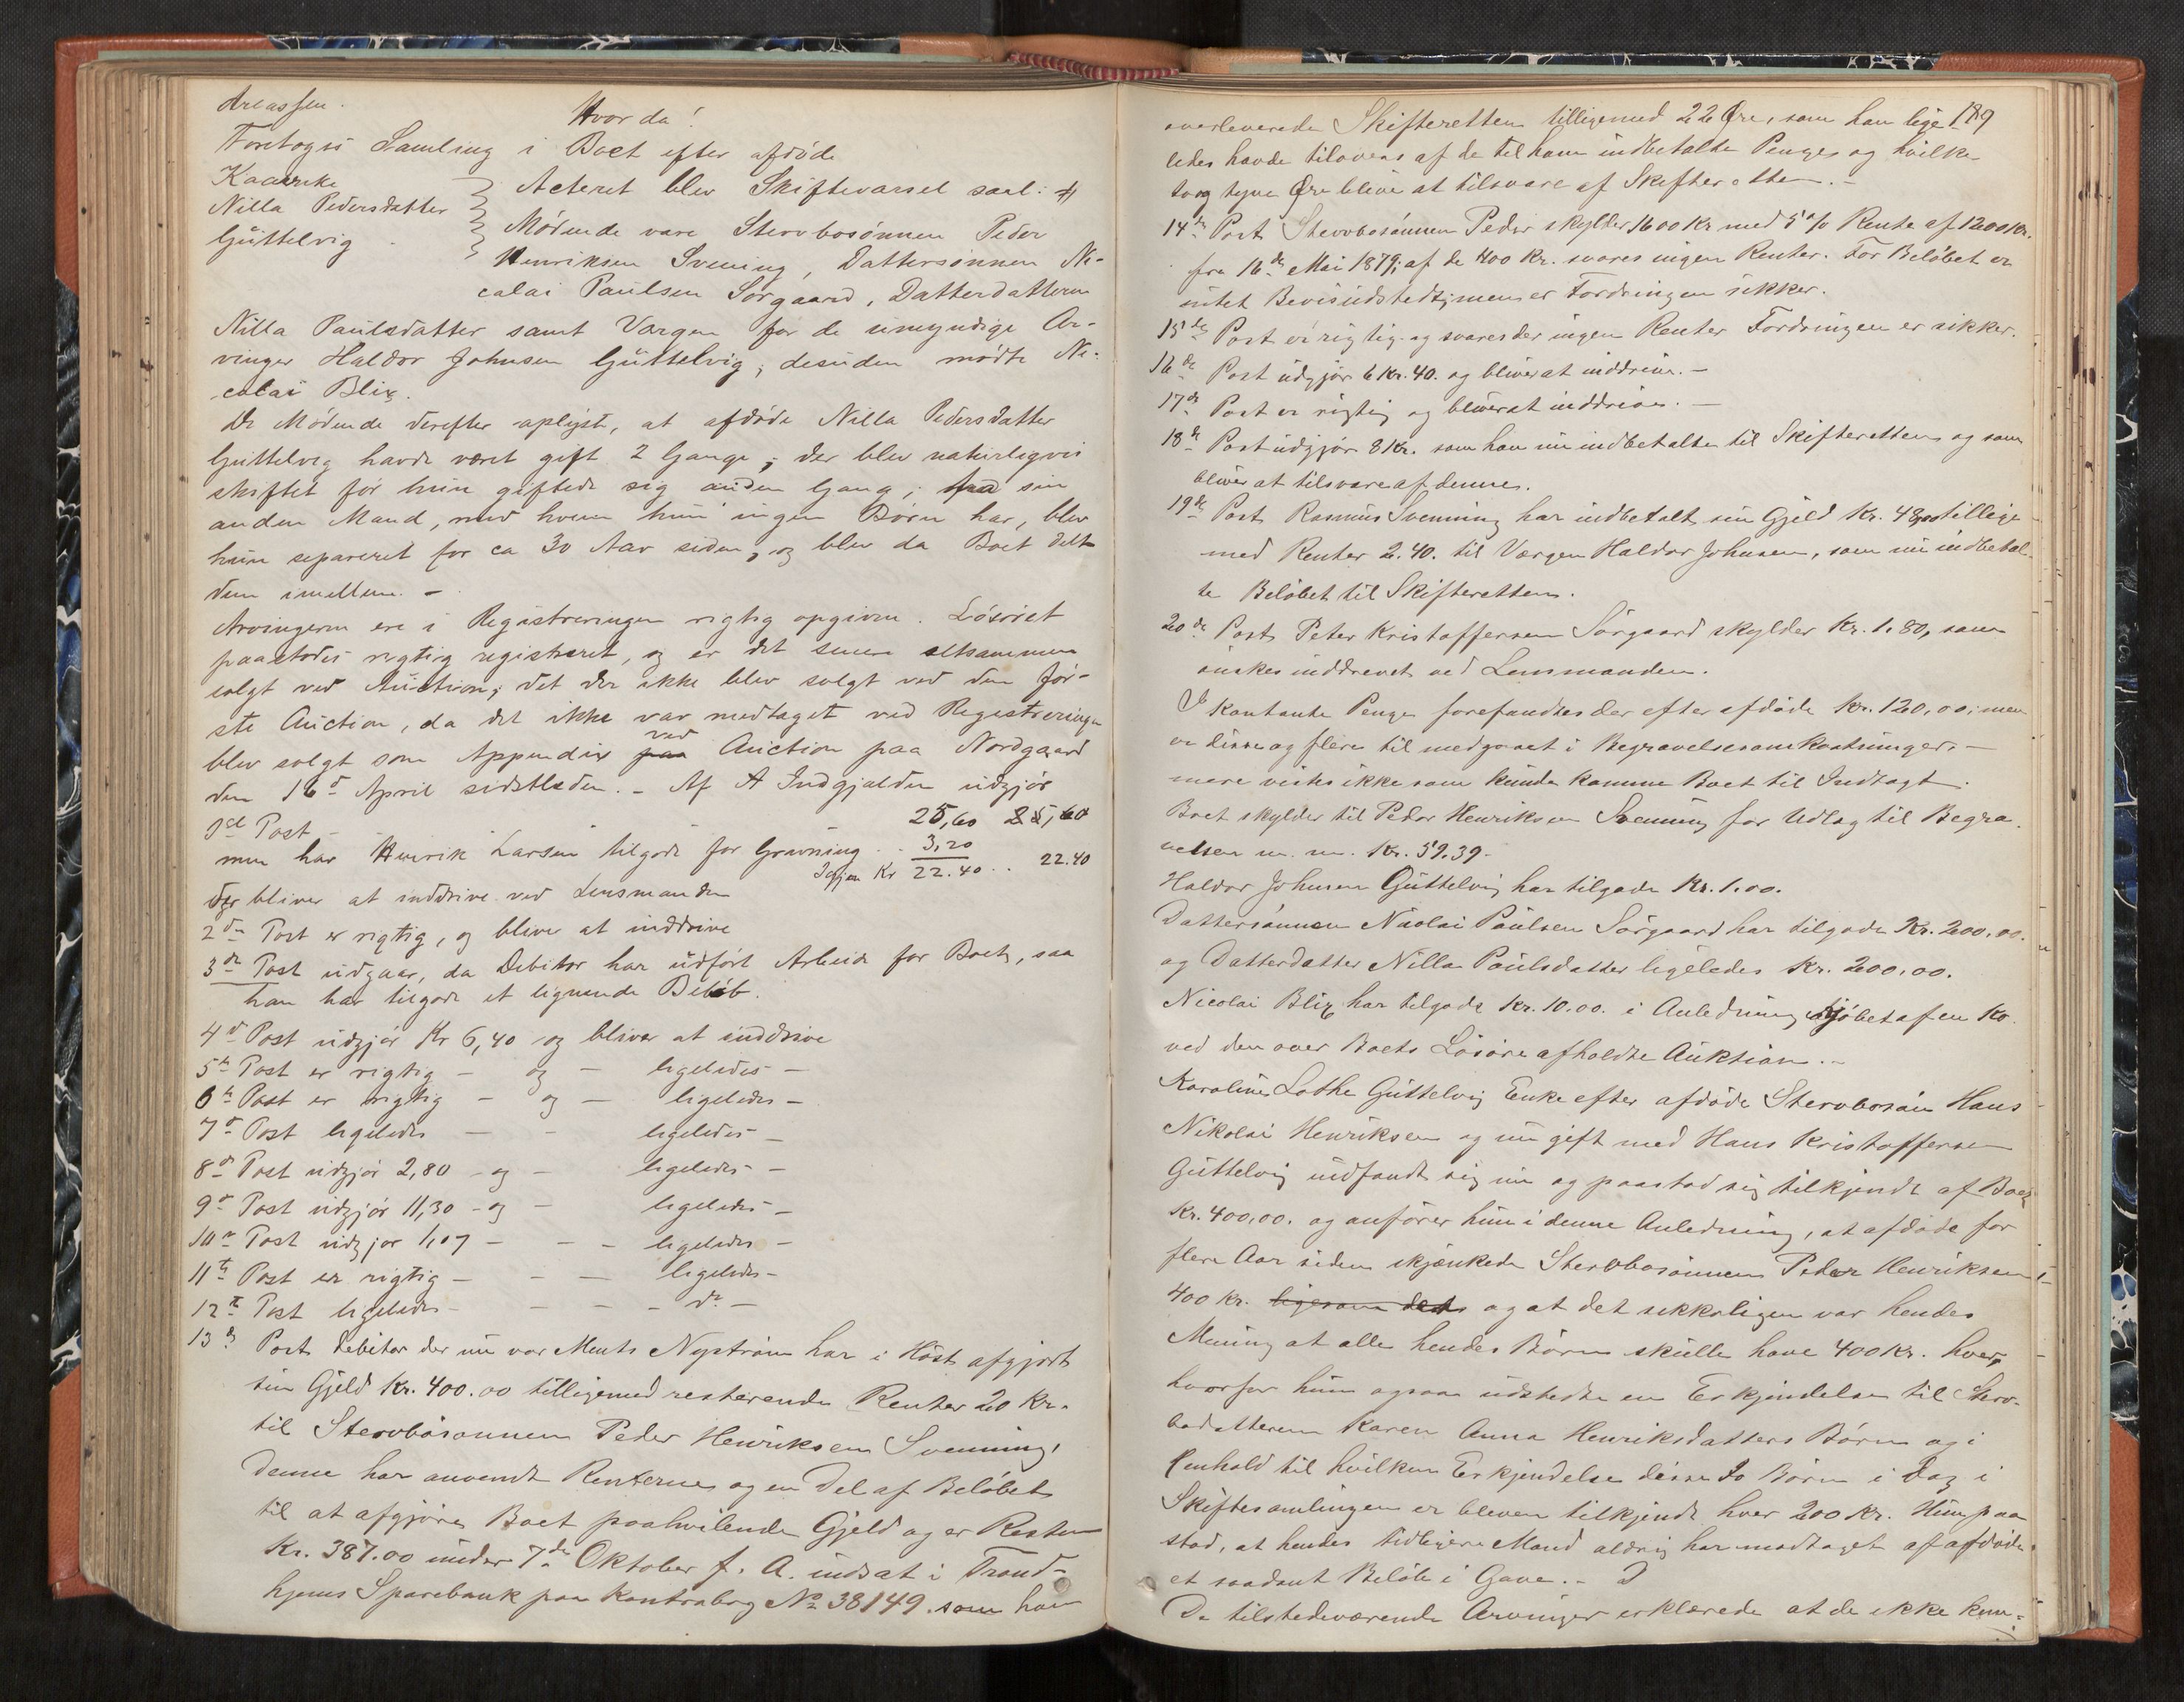 Hvor da!
Foretoges Samling i Boet efter afdöde
Kaarike
Nilla Pedersdatter
Güttelvig
Acteret blev Skiftevarsel saal: #
Mødende vare Stervbosønnen Peder
Henriksen Svening, Dattersönnen Ni-
colai Paulsen Sørgaard, Datterdatteren
Nilla Paulsdatter samt Vargen for de umyndige Ar-
vinger Haldor Johnsen Güttelvig; desuden mødte Ni-
colai Blix.
De Mödende derefter oplyste, at afdöde Nilla Pedersdatter
Güttelvig havde været gift 2 Gange; der blev naturligvis
skiftet før hun giftede sig anden Gang; fra sin
anden Mand, med hvem hun ingen Børn har, blev
hun separeret for ca 30 Aar siden, og blev da Boet delt
dem imellem. -
Arvingerne ere i Registreringen rigtig opgivne. Lösöret
paastodes rigtig registreret, og er det senere altsammen
solgt ved Auction; det der ikke blev solgt ved den för-
ste Auction, da det ikke var medtaget ved Registreringen
blev solgt som Appendix paa ved Auction paa Nordgaard
den 16d April sidstleden. - Af A Indgjælden udgjör
1st Post - 25,60 25,60
men har Henrik Larsen tilgode for Gravning .. 3,20
Igjen Kr 22.40 .. 22.40
der bliver at inddrive ved Lensmanden
2den Post er rigtig, og bliver at inddrive
3de Post udgaar, da Debitor har udfört Arbeide for Boet, saa
han har tilgode et lignende Beløb.
4d Post udgjör Kr 6,40 og bliver at inddrive
5te Post er rigtig - og - ligeledes -
6te Post er rigtig - og - ligeledes -
7d Post ligeledes - - ligeledes -
8d Post udgjör 2,80 - og - ligeledes -
9d Post udgjör 11,30 - og - ligeledes -
10d Post udgjör 1,07 - - - ligeledes -
11te Post er rigtig - - - ligeledes -
12te Post ligeledes - - - - do -
13de Post Debitor der nu var Ments Nyström har i Höst afgjort
sin Gjeld Kr. 400.00 tilligemed resterende Renter 20 Kr.
til Stervbosönnen Peder Henriksen Svenning,
Denne har anvendt Renterne og en Del af Beløbet
til at afgjøre Boet paahvilende Gjeld og er Resten
Kr. 387.00 under 7de Oktober f. A. indsat i Trond-
hjems Sparebank paa Kontrabog No 38149 som han
189
overleverede Skifteretten tilligemed 22 Øre, som han lige
ledes havde tilovers af de til ham indbetalte Penge og hvilke
to og tyve Øre bliver at tilsvare af Skifteretten. -
14de Post Stervbosönnen Peder skylder 1600 Kr med 5 % Rente af 1200 Kr.
fra 16de Mai 1879; af de 400 Kr. svares ingen Renter. For Beløbet er
intet Bevis udstedt; men er Fordringen sikker.
15de Post er rigtig og svares der ingen Renter Fordringen er sikker.
16de Post udgjör 6 Kr. 40. og bliver at inddrive. -
17de Post er rigtig og bliver at inddrives. -
18de Post udgjör 8 Kr. som han nu indbetalte til Skifteretten og som
bliver at tilsvare af denne.
19de Post Rasmus Svenning har indbetalt sin Gjeld Kr. 48,00 tillige
med Renter 2.40. til Værgen Haldor Johnsen, som nu indbetal-
te Beløbet til Skifteretten.
20de Post Peter Kristoffersen Sörgaard skylder Kr. 1.80, som
önskes inddrevet ved Lensmanden.
I Kontante Penge forefandtes der efter afdöde Kr. 120,00; men
er disse og flere til medgaaet i Begravelsesomkostninger. -
mere vistes ikke som kunde komme Boet til Indtægt.
Boet skylder til Peder Henriksen Svening for Udlæg til Begra-
velsen m. m. Kr. 59.39.
Haldor Johnsen Güttelvig har tilgode Kr. 1.00.
Dattersönnen Nicolai Paulsen Sörgaard har tilgode Kr. 200,00.
og Datterdatter Nilla Paulsdatter ligeledes Kr. 200.00.
Nicolai Blix har tilgode Kr. 10.00. i Anledning Kjöbet af en Ko
ved den over Boets Lösöre afholdte Auktion. -
Karoline Lothe Güttelvig Enke efter afdöde Stervbosön Hans
Nikolai Henriksen og nu gift med Hans Kristoffersen
Güttelvig indfandt sig nu og paastod sig tilkjendt af Boet
Kr. 400,00. og anförer hun i denne Anledning, at afdöde for
flere Aar siden skjænkede Stervbosönnen Peder Henriksen
400 Kr. ligesom det og at det sikkerligen var hendes
Mening at alle hendes Börn skulle have 400 Kr. hver,
hvorfor hun ogsaa udstedte en Erkjendelse til Sterv-
bodatteren Karen Anna Henriksdatters Börn og i
Henhold til hvilken Erkjendelse disse to Börn i Dag i
Skiftesamlingen er bleven tilkjendt hver 200 Kr. Hun paa
stod, at hendes tidligere Mand aldrig har modtaget af afdöde
et saadant Beløb i Gave. -
De tilstedeværende Arvinger erklærede at de ikke kun-